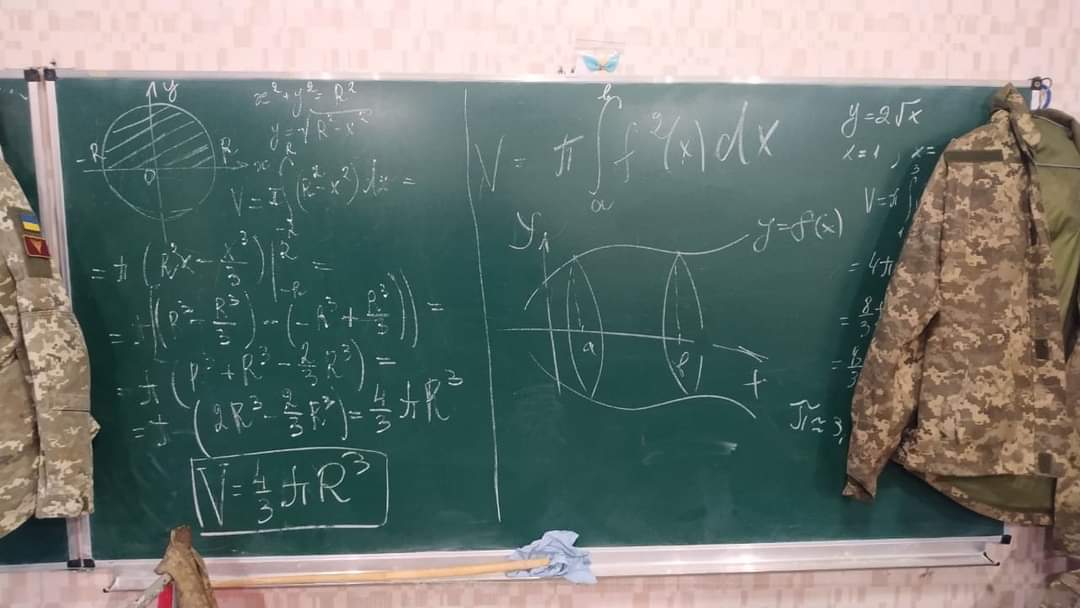 y
-R
R
0
x
x² + y² = R²
y = √R² - x²
V = π ∫ (R² - x²) dx =
R
-R
= π (R²x - x³/3) |
R
-R
=
= π ((R³ - R³/3) - (-R³ + R³/3)) =
= π (R³ + R³ - 2/3 R³) =
= π (2R³ - 2/3 R³) = 4/3 πR³
V = 4/3 πR³
V = π ∫ f²(x) dx
b
a
y
y = f(x)
a
b
y = 2√x
x = 1, x =
V = π ∫
= 4π
= 8
3
=
π ≈ 3,